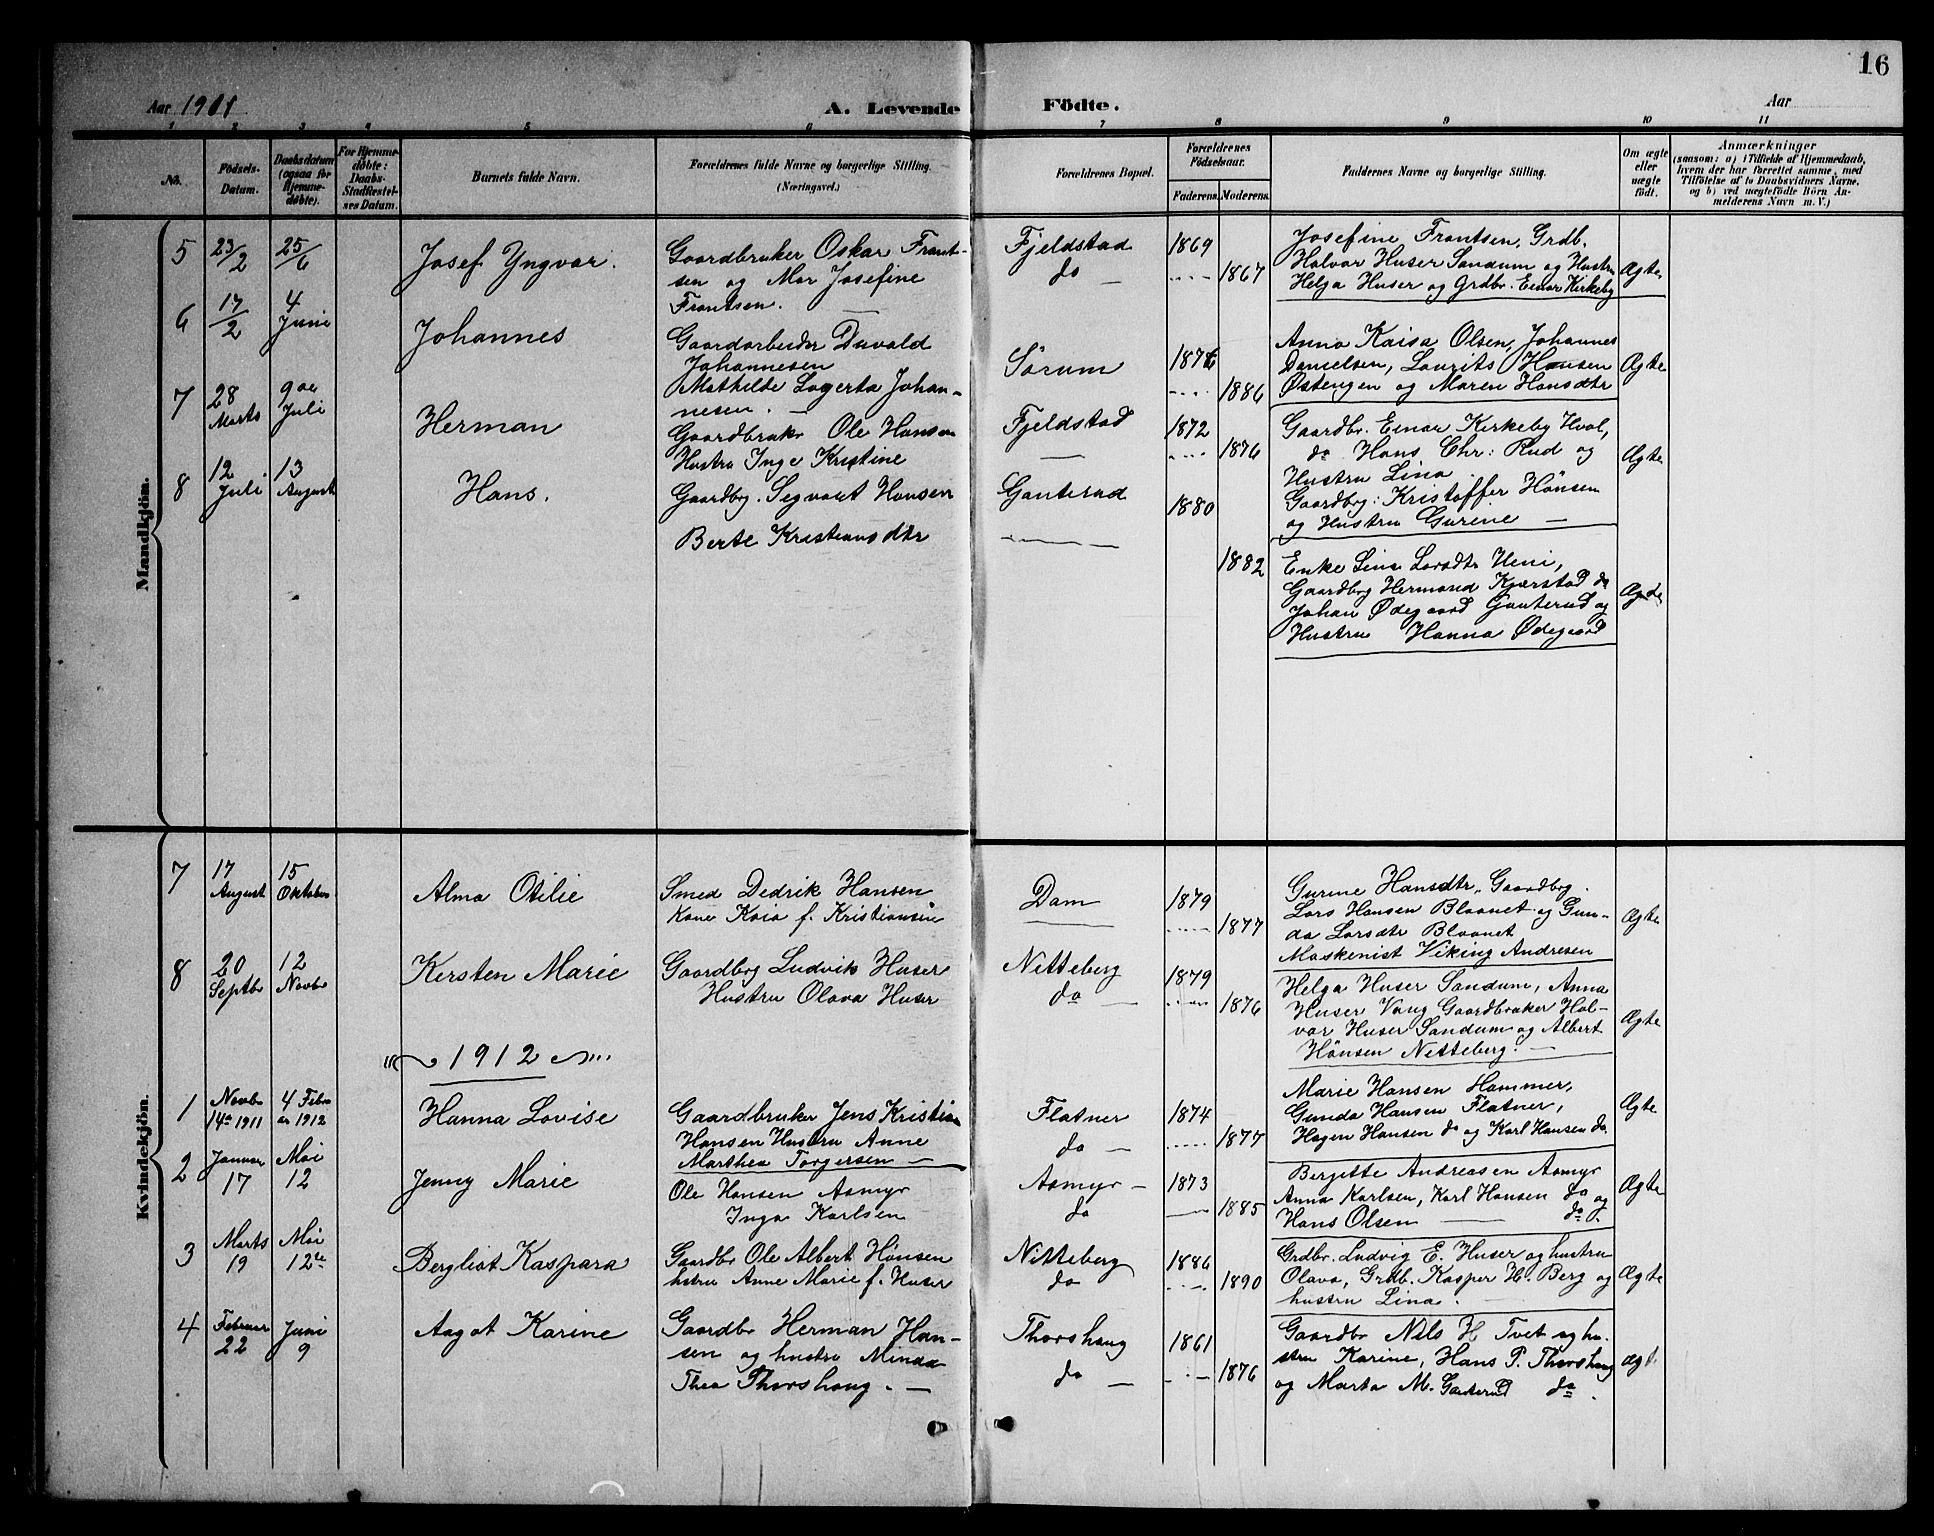 16
Aar 1911
A. Levende Födte.
Aar
1 2 3 4 5 6 7 8 9 10 11
No.
Födsels-
Datum.
Daabsdatum
(ogsaa for
Hjemme-
døbte).
For Hjemme-
døbte:
Daabs-
Stadfæstel-
ses Datum.
Barnets fulde Navn.
Forældrenes fulde Navne og borgerlige Stilling.
(Næringsvei.)
Forældrenes Bopæl.
Forældrenes
Födselsaar.
Faderens. Moderens.
Faddernes Navne og borgerlige Stilling.
Om ægte
eller
uægte
født.
Anmærkninger
(saasom: a) i Tilfælde af Hjemmedaab,
hvem der har forrettet samme, med
Tilföielse af to Daabsvidners Navne,
og b) ved uægtefödte Börn An-
melderens Navn m. V.)
Mandkjön.
5
23/2
25/6
Josef Yngvar.
Gaardbruker Oskar Frant-
sen og Mor Josefine
Frantsen.
Fjeldstad
do
1869
1867
Josefine Frantsen, Grdb.
Halvar Huser Sandum og Hustru
Helga Huser og Grdbr. Einar Kirkeby
Ægte
6
17/2
4
Juni
Johannes
Gaardarbeider Duvald
Johannesen
Mathilde Lagerta Johan-
nesen.
Sørum
1886
Anna Kaisa Olsen, Johannes
Danielsen, Laurits Hansen
Østengen og Maren Hansdtr
Ægte
7
28
Marts
9de
Juli
Herman
Gaardbrukr Ole Hansen
Hustru Inge Kristine
Fjeldstad
1872
1876
Gaardbr. Einar Kirkeby Hval,
do Hans Chr: Rud og
Hustru Lina
Gaardbrg: Kristoffer Hönsen
og Hustru Gurine
Ægte
8
12
Juli
13
August
Hans.
Gaardbrg. Segvart Hansen
Berte Kristiansdtr
Ganterud
1880
1882
Enke Lina Larsdtr Heni,
Gaardbrg Hermand Kjærstad do
Johan Ødegaard Ganterud og
Hustru Hanna Ødegaard
Ægte
Kvindekjön.
7
17
August
15
Oktober
Alma Otilie
Smed Dedrik Hansen
Kone Kaia f. Kristiansen
Dam
1879
1877
Gurine Hansdtr, Gaardbrg.
Lars Hansen Blaanet og Gun-
da Larsdtr Blaanet
Maskenist Viking Andresen
Ægte
8
20
Septbr
12
Novbr
Kersten Marie
Gaardbrg Ludvik Huser
Hustru Olava Huser
Nitteberg
do
1879
1876
Helga Huser Sandum, Anna
Huser Vang Gaardbruker Hal-
var Huser Sandum og Albert
Hönsen Nitteberg.
Ægte
1912
1
Novbr
14de 1911
4 Febr
ar 1912
Hanna Lovise
Gaardbruker Jens Kristian
Hansen Hustru Anne
Marthea Torgersen
Flatner
do
1874
1877
Marie Hansen Hammer,
Gunda Hansen Flatner,
Hagen Hansen do og Karl Hansen do.
Ægte
2
Januar
17
Mai
12
Jenny Marie
Ole Hansen Aamyr
Inga Karlsen
Aamyr
do
1873
1885
Bergitte Andreasen Aamyr
Anna Karlsen, Karl Hansen do og
Hans Olsen do.
Ægte
3
Marts
19
Mai
12te
Bergliot Kaspara
Gaardbr Ole Albert Hönsen
hstru Anne Marie f. Huser
Nitteberg
do
1886
1890
Grdbr. Ludvig E. Huser og hustru
Olava, Grdb. Kasper H. Berg og
hustru Lina.
Ægte
4
Februar
22
Juni
9
Aagot Karine
Gaardbr Herman Han-
sen og hustru Minda
Thea Thorshaug.
Thorshaug
do
1861
1876
Gaardbr Nils H Tvet og hu-
stru Karine, Hans P. Thorshaug
og Marta M. Ganterud do.
Ægt.